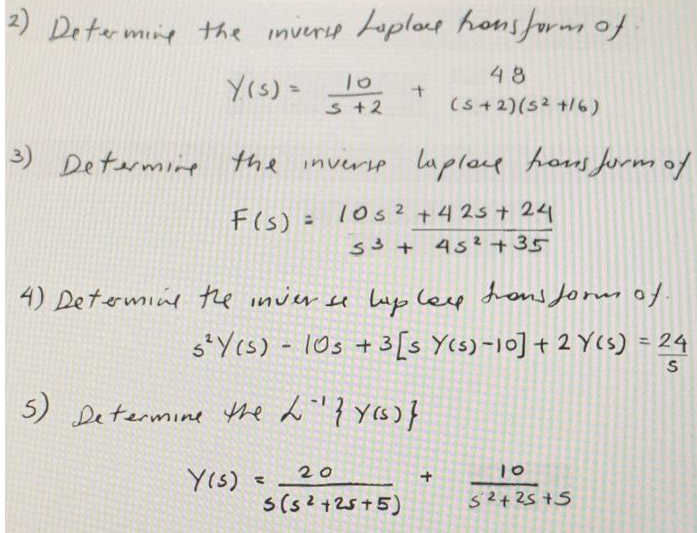 2) Determine the inverse Laplace transform of.
Y(s) = 10/(s+2) + 48/((s+2)(s²+16))
3) Determine the inverse laplace transform of
F(s) = (10s² + 42s + 24)/(s³ + 4s² + 35)
4) Determine the inverse laplace transform of.
s²Y(s) - 10s + 3[s Y(s)-10] + 2Y(s) = 24/s
5) Determine the L⁻¹{Y(s)}
Y(s) = 20/(s(s²+2s+5)) + 10/(s²+2s+5)